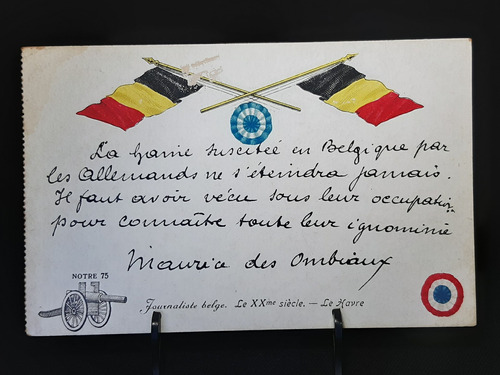 La haine suscitée en Belgique par
les Allemands ne s'éteindra jamais.
Il faut avoir vécu sous leur occupation
pour connaître toute leur ignominie
Maurice des Ombiaux
NOTRE 75
Journaliste belge. Le XXme siècle. — Le Havre